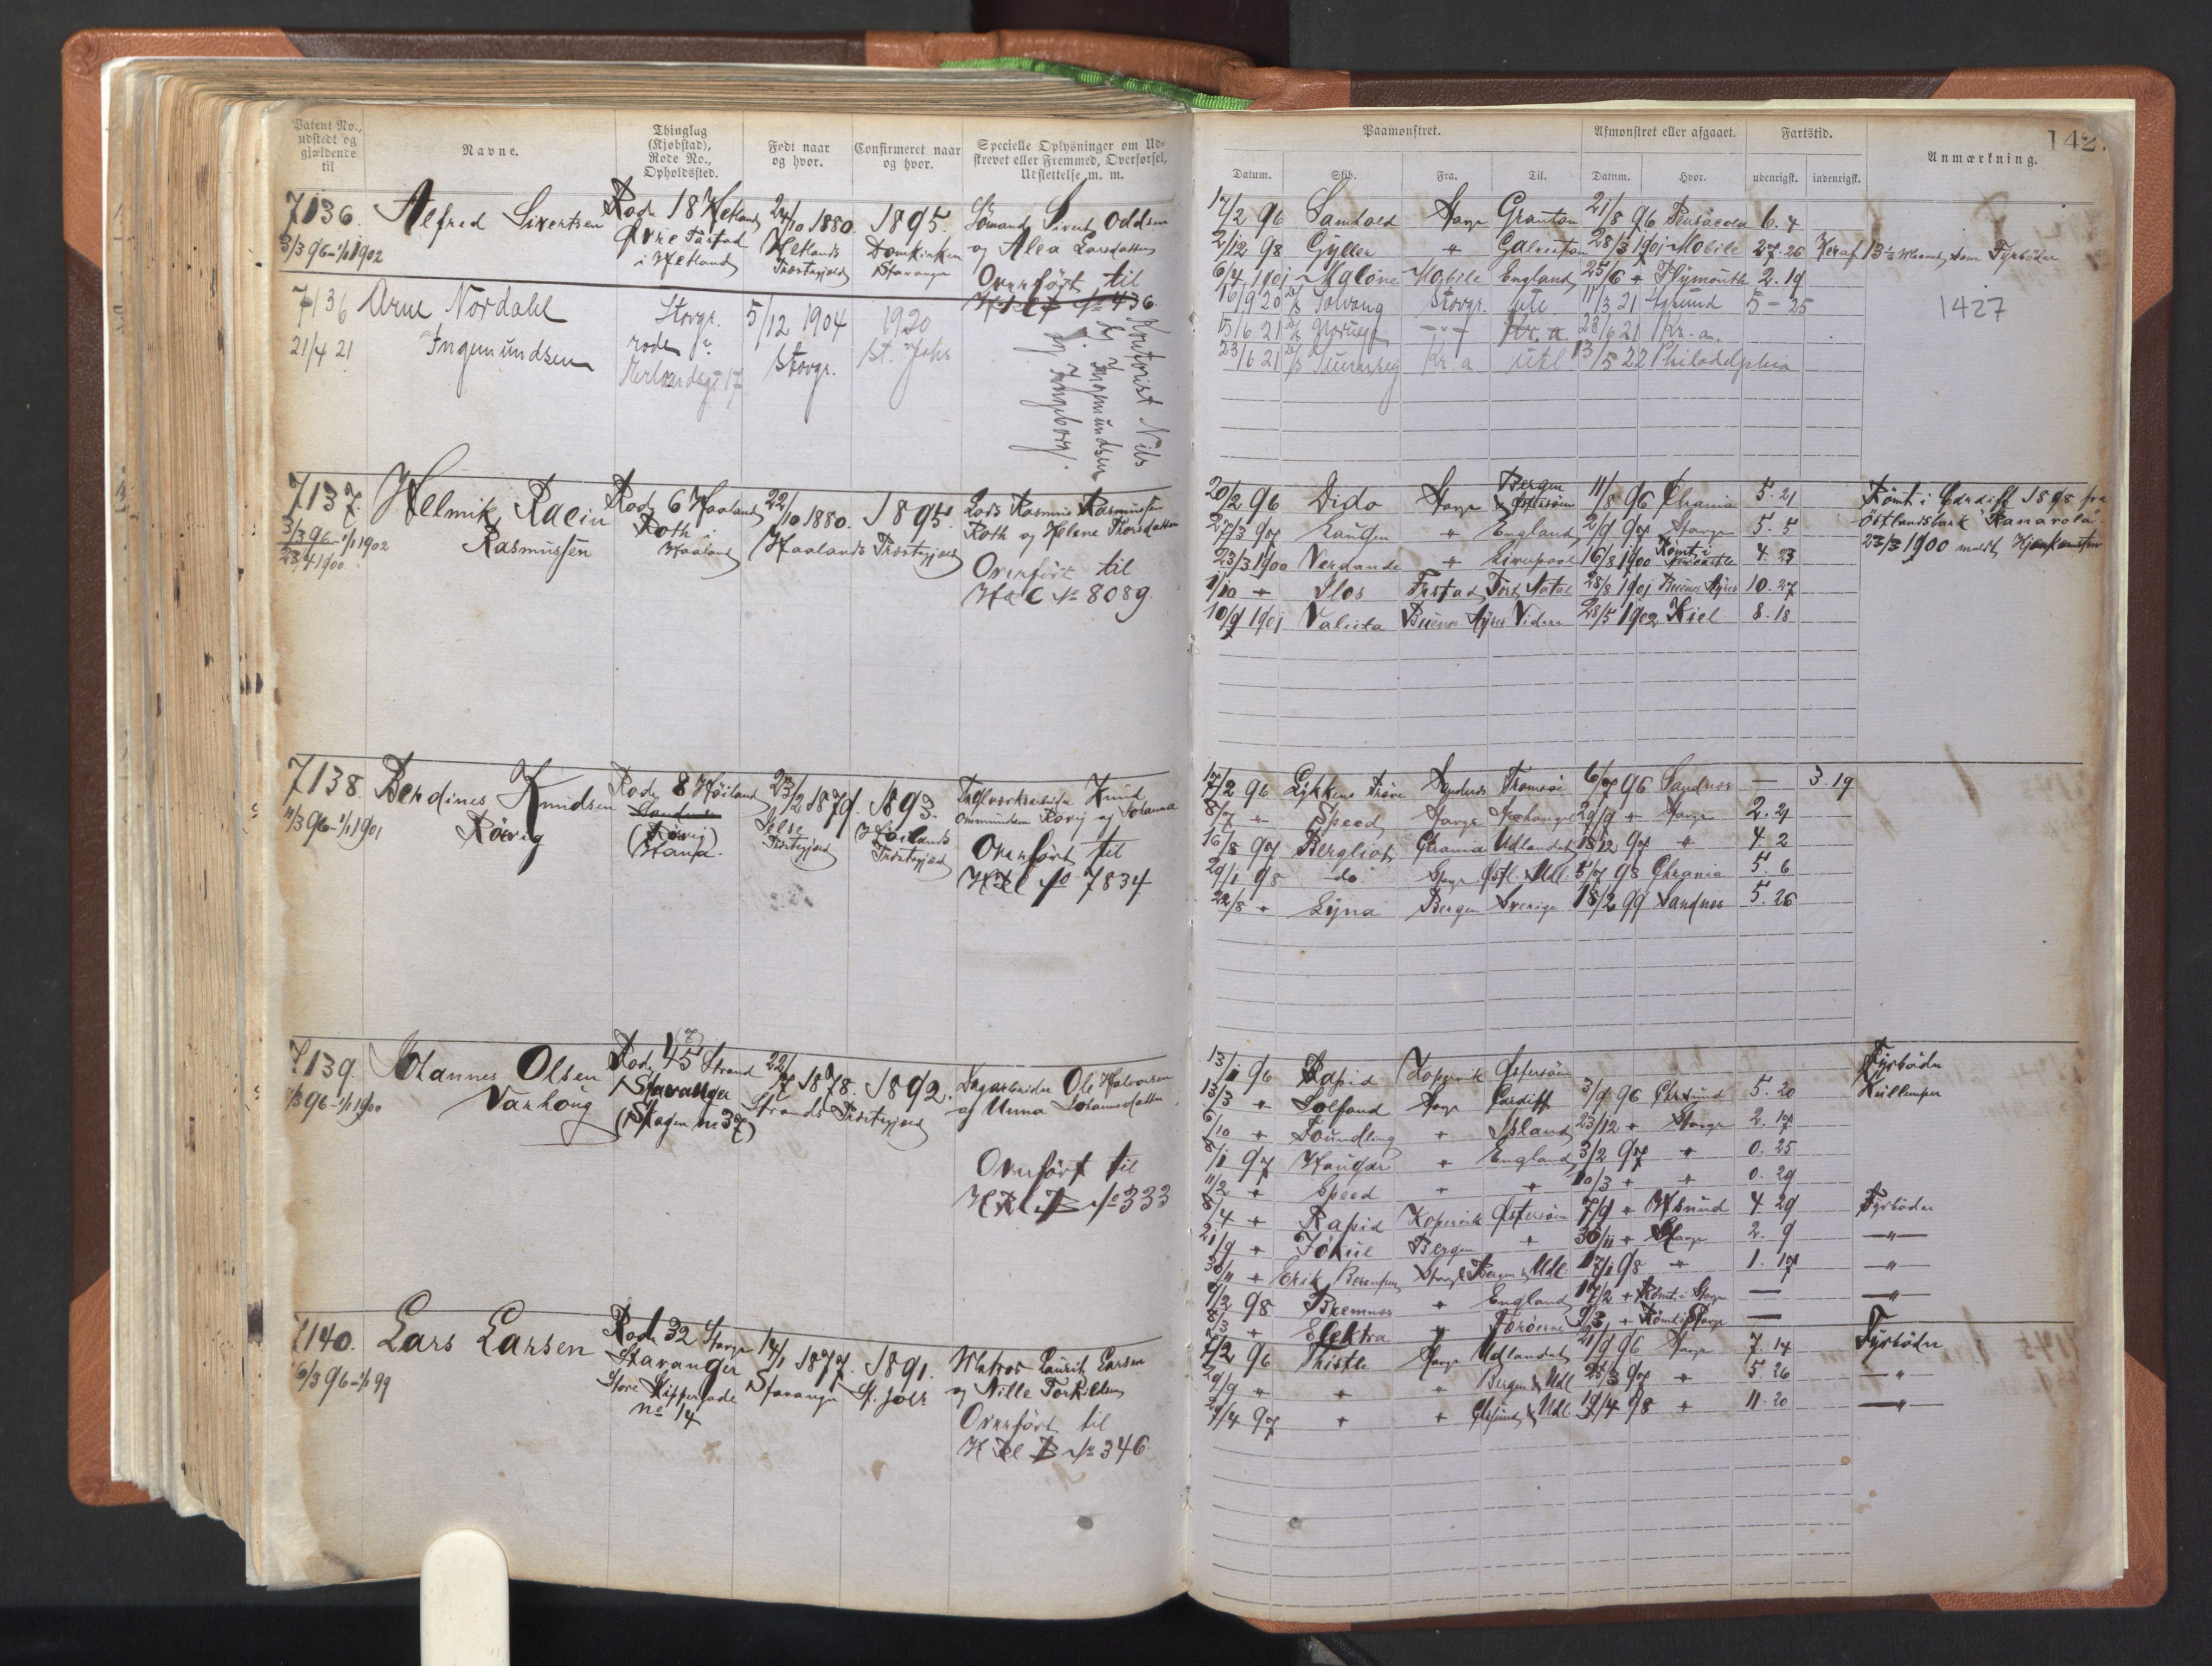 Patent No., udstedt og gjældende til
Navne.
Thinglug (Kjøbstad), Rode No., Opholdssted.
Født naar og hvor.
Confirmeret naar og hvor.
Specielle Oplysninger om Udskrevet eller Fremmed, Overførsel, Udslettelse m. m.
Paamønstret.
Afmønstret eller afgaaet.
Fartstid.
Anmærkning.
142
Datum. Skib. Fra. Til. Datum. Hvor. udenrigsk. indenrigsk.
7136. Alfred Sivertsen Rode 18 Hetland 24/10 1880. 1895. Sömand Sivert Oddsen
3/3 96 - 1/1 1902 Övre Tastad Hetlands Domkirken og Alea Larsdatter
i Hetland Præstegjeld Stavanger Overført til
No 436
17/2 96 Stavgr Granton 21/8 96 Pensacola 6. 4
2/12 98 Gyller " Galveston 28/3 1901 Mobile 27-26 Heraf 13 1/2 Maaned som Fyrböder
6/4 1901 Malone Mobile England 25/6 " Plymouth 2. 19
7136 Arne Nordahl Stavgr. 5/12 1904 1920
21/4 21 Ingemundsen rode Stavgr. St. Johs
17
Kontorist Nils
Ingemundsen
og Ingeborg.
16/9 20 Solvang Stavgr. Utl. 11/3 21 5-25
15/6 21 Kr.a. 23/6 21 Kr.a.
23/6 21 Kr a Utl 13/5 22 Philadelphia
1427
7137. Helmik Racin Rode 6 Haaland 22/10 1880. 1895. Lods Rasmus Rasmussen
3/3 96 - 1/1 1902 Rasmussen Roth i Haaland Haalands Præstegjeld Roth og Helene Thorsdatter
23/4 1900
Overført til
No 8089.
20/2 96 Dido Stavgr Bergen & Östersöen 11/8 96 Chrania 5. 21
27/3 97 Laugen " England 2/9 97 Stavgr 5. 5
23/3 1900 Verdande " Liverpool 16/8 1900 Römt i 4. 23
1/10 " Ilos Frstad Port Natal 28/8 1901 Buenos Ayres 10. 27
10/9 1901 Buenos Ayres 28/5 1902 Kiel 8. 18
Römt i Cardiff 1898 fra
Östlandsbark "Kanarola".
23/3 1900 meldt Hjemkomsten
7138. Berdines Knudsen Rode 8 Höiland 23/2 1879. 1893. Knud
11/3 96 - 1/1 1901 Rövig Sandnes Præstegjeld Höilands Ommundsen Rövig og Johanna
(Rövig) Præstegjeld
Overført til
No 7834
17/2 96 Lykkens Pröve Sandnes Tromsöe 6/7 96 Sandnes — 3. 19
8/7 " Speed Stavgr 29/9 " Stavgr 2. 21
16/8 97 Bergliot Chrania Udlandet 18/12 97 " 4 2
29/1 98 do. Stavgr Östl. & Udl. 5/7 98 Chrania 5. 6
22/8 " Bergen Sverige 18/2 99 Sandnes 5. 26
7139. Johannes Olsen Rode 45 Strand 22/7 1878. 1892. Dagarbeider Ole Halvorsen
11/3 96 - 1/1 1900 Varhoug Stavanger Strands Præstegjeld og Anna Johannesdatter
(Skagen no 37)
Overført til
B No 333
13/1 96 Rapid Kopervik Östersöen Fyrböder
13/3 " Solfond Stavgr Cardiff 3/9 96 Chrsund 5. 20 Kullemper
6/10 " Foundling " Island 23/12 " Stavgr 2. 17
8/1 97 Haugar " England 3/2 97 " 0. 25
11/2 " Speed " " 10/3 " " 0. 29
8/4 " Rapid Kopervik Östersöen 7/9 " 4 29 Fyrböder
21/9 " Jökul Bergen " 30/11 " Stavgr 2. 9 —"—
30/11 " Erik Berentsen Stavgr Bergen & Udl. 17/1 98 " 1. 17 —"—
9/2 98 Bremnes " England 17/2 " Römt i Stavgr — —"—
8/3 " Elektra " Færöerne 9/3 " Römt i Stavgr —
7140. Lars Larsen Rode 32 Stavgr 14/1 1877. 1891. Matros Laurits Larsen
6/3 96 - 1/1 99 Stavanger Stavanger St. Johs og Nille Torkildsen
Store Skippergade
no 14
Overført til
B No 346.
7/2 96 Thistle Stavgr Udlandet 21/9 96 Stavgr 7. 14 Fyrböder
29/9 " " " Bergen & Udl 25/3 97 " 5. 26 —"—
29/4 97 " " & Udl. 19/4 98 " 11. 20 —"—